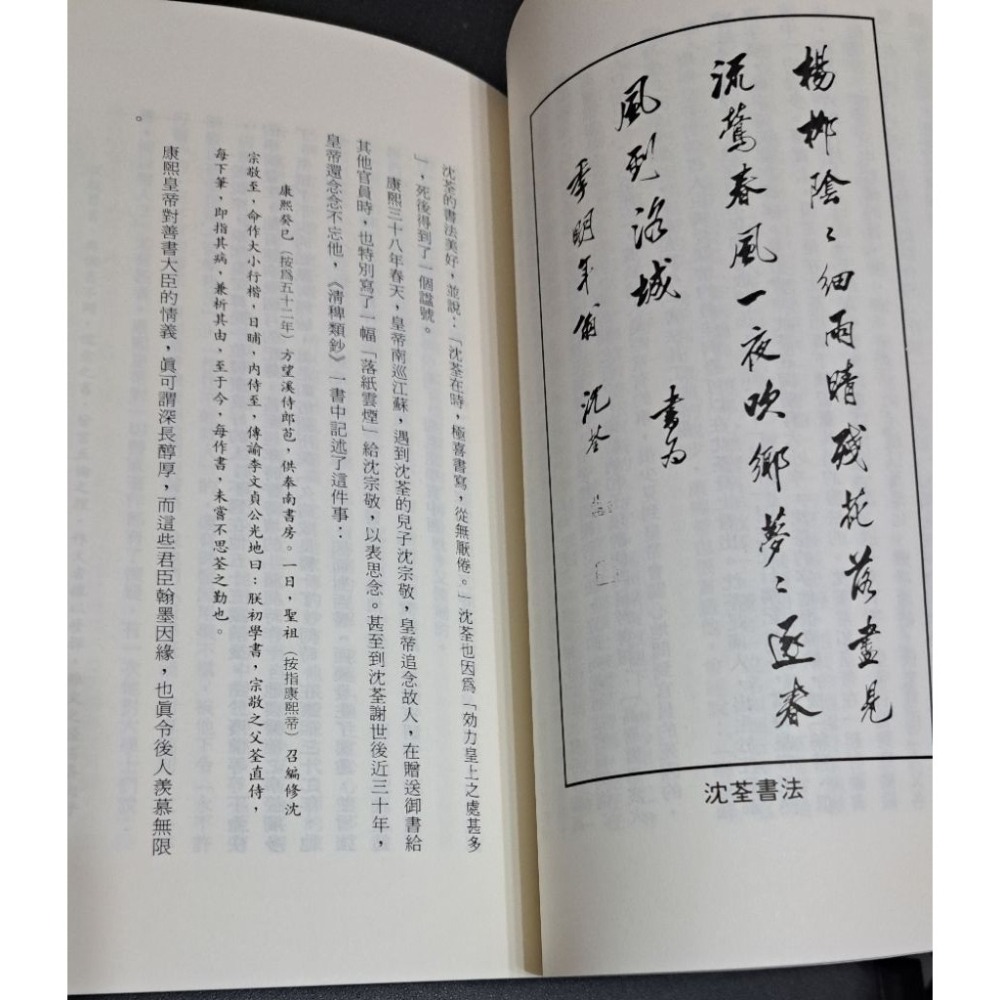 楊柳陰〻細雨晴殘花落盡見
流鶯春風一夜吹鄉夢〻逐春
風到洛城
書為
季明年翁
沈荃
沈荃書法
沈荃的書法美好，並說：「沈荃在時，極喜書寫，從無厭倦。」沈荃也因為「効力皇上之處甚多
」，死後得到了一個諡號。
康熙三十八年春天，皇帝南巡江蘇，遇到沈荃的兒子沈宗敬，皇帝追念故人，在贈送御書給
其他官員時，也特別寫了一幅「落紙雲煙」給沈宗敬，以表思念。甚至到沈荃謝世後近三十年，
皇帝還念念不忘他，《清稗類鈔》一書中記述了這件事：
康熙癸巳（按為五十二年）方望溪侍郎苞，供奉南書房。一日，聖祖（按指康熙帝）召編修沈
宗敬至，命作大小行楷，日晡，內侍至，傳諭李文貞公光地曰：朕初學書，宗敬之父荃直侍，
每下筆，即指其病，兼析其由，至于今，每作書，未嘗不思荃之勤也。
康熙皇帝對善書大臣的情義，眞可謂深長醇厚，而這些君臣翰墨因緣，也眞令後人羨慕無限
。